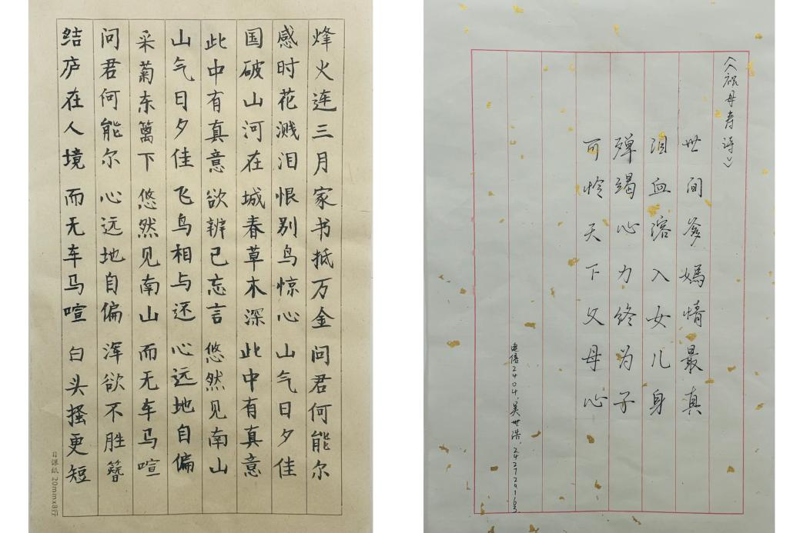 烽火连三月 家书抵万金 问君何能尔
感时花溅泪 恨别鸟惊心 山气日夕佳
国破山河在 城春草木深 此中有真意
此中有真意 欲辨已忘言 悠然见南山
山气日夕佳 飞鸟相与还 心远地自偏
采菊东篱下 悠然见南山 而无车马喧
问君何能尔 心远地自偏 浑欲不胜簪
结庐在人境 而无车马喧 白头搔更短
日课纸 20mmx8行
《祝母寿诗》
世间爹妈情最真
泪血溶入女儿身
殚竭心力终为子
可怜天下父母心
电信2404